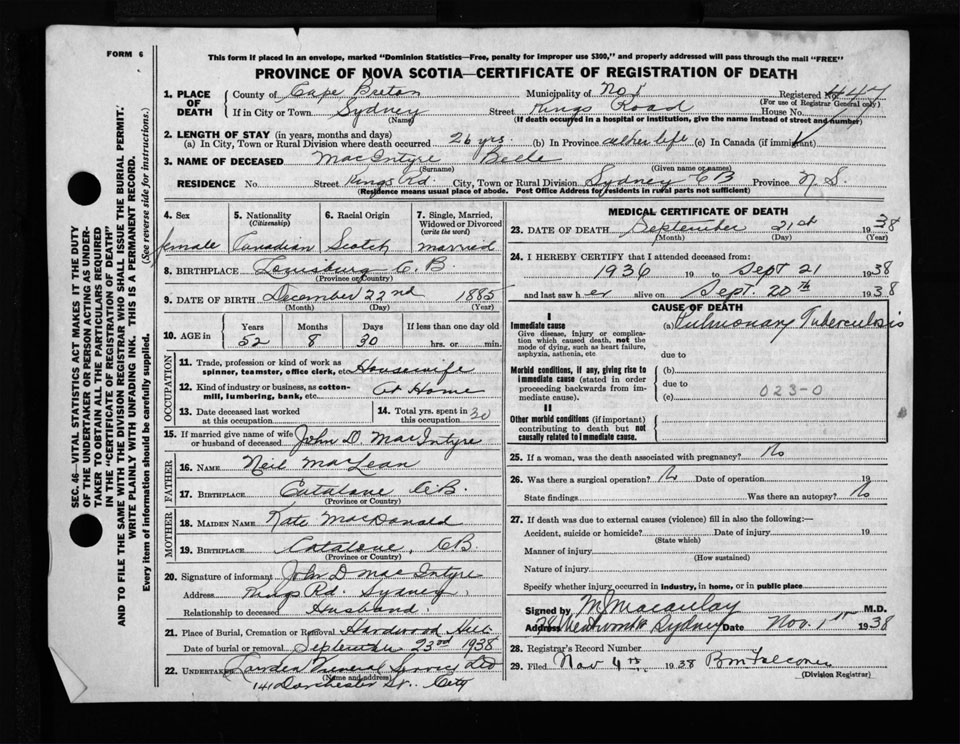 FORM 6
This form if placed in an envelope, marked "Dominion Statistics—Free, penalty for improper use $300," and properly addressed will pass through the mail "FREE"
PROVINCE OF NOVA SCOTIA—CERTIFICATE OF REGISTRATION OF DEATH
1. PLACE OF DEATH County of Cape Breton Municipality of No 1 Registered No. 447
(For use of Registrar General only)
If in City or Town Sydney Street Kings Road House No.
(Name) (If death occurred in a hospital or institution, give the name instead of street and number)
2. LENGTH OF STAY (in years, months and days)
(a) In City, Town or Rural Division where death occurred 26 yrs. (b) In Province all her life (c) In Canada (if immigrant)
3. NAME OF DECEASED MacIntyre Belle
(Surname) (Given name or names)
RESIDENCE No. Street Kings Rd. City, Town or Rural Division Sydney CB Province N.S.
(Residence means usual place of abode. Post Office Address for residents in rural parts not sufficient)
4. Sex 5. Nationality (Citizenship) 6. Racial Origin 7. Single, Married, Widowed or Divorced (write the word)
female Canadian Scotch married
8. BIRTHPLACE Louisburg C.B.
(Province or Country)
9. DATE OF BIRTH December 22nd 1885
(Month) (Day) (Year)
10. AGE in Years Months Days If less than one day old
52 8 30 hrs. or min.
OCCUPATION
11. Trade, profession or kind of work as spinner, teamster, office clerk, etc. Housewife
12. Kind of industry or business, as cotton-mill, lumbering, bank, etc. At Home
13. Date deceased last worked at this occupation 14. Total yrs. spent in this occupation 30
15. If married give name of wife or husband of deceased John D. MacIntyre
FATHER
16. NAME Neil MacLean
17. BIRTHPLACE Catalone C.B.
(Province or Country)
MOTHER
18. MAIDEN NAME Kate MacDonald
19. BIRTHPLACE Catalone, CB.
(Province or Country)
20. Signature of informant John D MacIntyre
Address Kings Rd. Sydney
Relationship to deceased Husband
21. Place of Burial, Cremation or Removal Hardwood Hill
Date of burial or removal September 23rd 1938
22. Undertaker Funeral Service Ltd
(Name and address)
141 Dorchester St. City
MEDICAL CERTIFICATE OF DEATH
23. DATE OF DEATH September 21st 1938
(Month) (Day) (Year)
24. I HEREBY CERTIFY that I attended deceased from:
1936 19 to Sept 21 1938
and last saw her alive on Sept. 20th 1938
CAUSE OF DEATH
I
Immediate cause (a) Pulmonary Tuberculosis
Give disease, injury or complication which caused death, not the mode of dying, such as heart failure, asphyxia, asthenia, etc
due to
Morbid conditions, if any, giving rise to immediate cause (stated in order proceeding backwards from immediate cause). (b)
due to
(c) 023-0
II
Other morbid conditions (if important) contributing to death but not causally related to immediate cause.
25. If a woman, was the death associated with pregnancy? No
26. Was there a surgical operation? No Date of operation 19
State findings Was there an autopsy? No
27. If death was due to external causes (violence) fill in also the following:—
Accident, suicide or homicide? Date of injury 19
(State which)
Manner of injury
(How sustained)
Nature of injury
Specify whether injury occurred in industry, in home, or in public place
Signed by M. Macaulay M.D.
Address 28 Wentworth Sydney Date Nov. 1st 1938
28. Registrar's Record Number
29. Filed Nov 4th 1938 Falconer
(Division Registrar)
SEC. 46—VITAL STATISTICS ACT MAKES IT THE DUTY
OF THE UNDERTAKER OR PERSON ACTING AS UNDER-
TAKER TO OBTAIN ALL THE PARTICULARS REQUIRED
IN THE "CERTIFICATE OF REGISTRATION OF DEATH"
AND TO FILE THE SAME WITH THE DIVISION REGISTRAR WHO SHALL ISSUE THE BURIAL PERMIT.
WRITE PLAINLY WITH UNFADING INK. THIS IS A PERMANENT RECORD.
Every item of information should be carefully supplied. (See reverse side for instructions.)